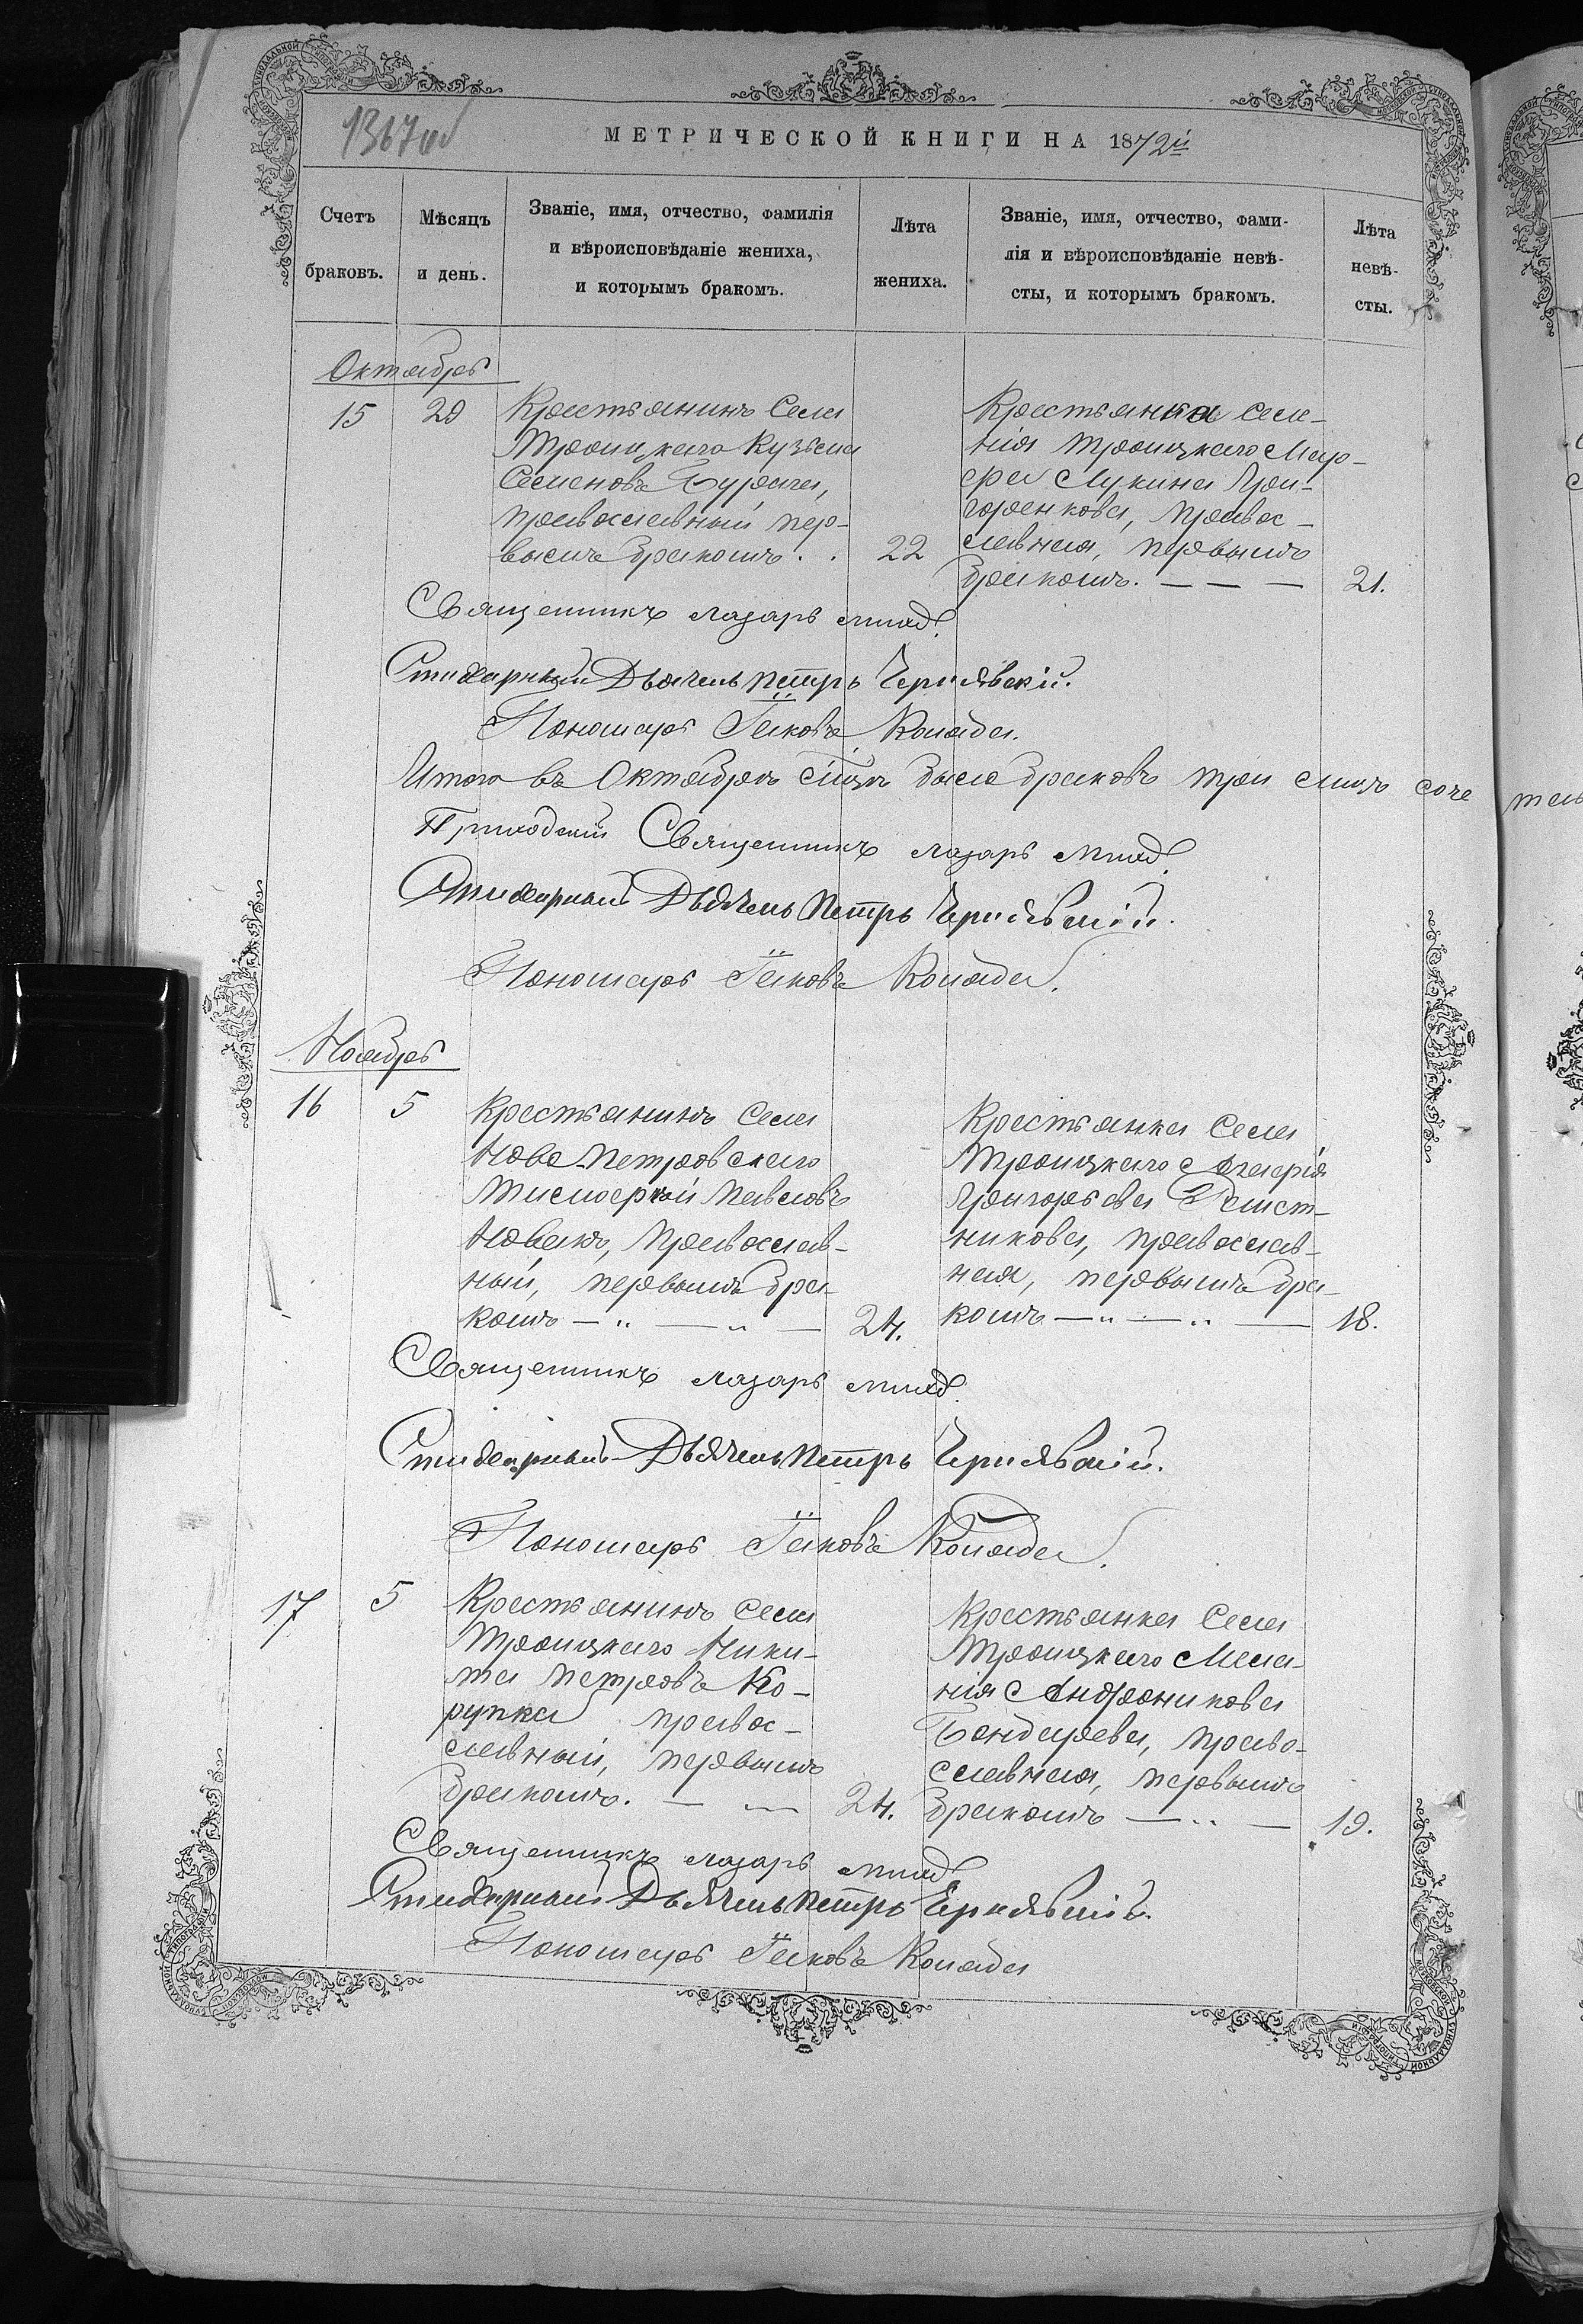 1367об
МЕТРИЧЕСКОЙ КНИГИ НА 1872й
Счетъ браковъ.
Мѣсяцъ и день.
Званіе, имя, отчество, фамилія
и вѣроисповѣданіе жениха,
и которымъ бракомъ.
Лѣта жениха.
Званіе, имя, отчество, фами-
лія и вѣроисповѣданіе невѣ-
сты, и которымъ бракомъ.
Лѣта невѣ-
сты.
Октябрь
15 29
Крестьянинъ Села
Троицкаго Кузьма
Семеновъ Бурага,
православный пер-
вымъ бракомъ . . 22
Крестьянка селе-
нія Троицкаго Мар-
фа Лукина Гри-
горенкова, правос-
лавная, первымъ
бракомъ. — — — 21.
Священникъ Лазарь
Стихарный Дьячекъ Петръ Чернявскій.
Пономарь Іаковъ Коляда.
Итого въ Октябрѣ было браковъ три
Приходскій Священникъ Лазарь
Стихарный Дьячекъ Петръ Чернявскій.
Пономарь Іаковъ Коляда.
Ноябрь
16 5
Крестьянинъ Села
Ново-Петровскаго
Тимофей Павловъ
Новакъ, Православ-
ный, первымъ бра-
комъ — „ — „ — 24.
Крестьянка Села
Троицкаго
Григорьева
никова, православ-
ная, первымъ бра-
комъ — „ — „ — 18.
Священникъ Лазарь
Стихарный Дьячекъ Петръ Чернявскій.
Пономарь Іаковъ Коляда.
17 5
Крестьянинъ Села
Троицкаго Ники-
та Петровъ Ко-
рупка правос-
лавный, первымъ
бракомъ. — — 24.
Крестьянка Села
Троицкаго Мела-
нія Андроникова
Бондарева, право-
славная, первымъ
бракомъ — „ — 19.
Священникъ Лазарь
Стихарный Дьячекъ Петръ Чернявскій.
Пономарь Іаковъ Коляда